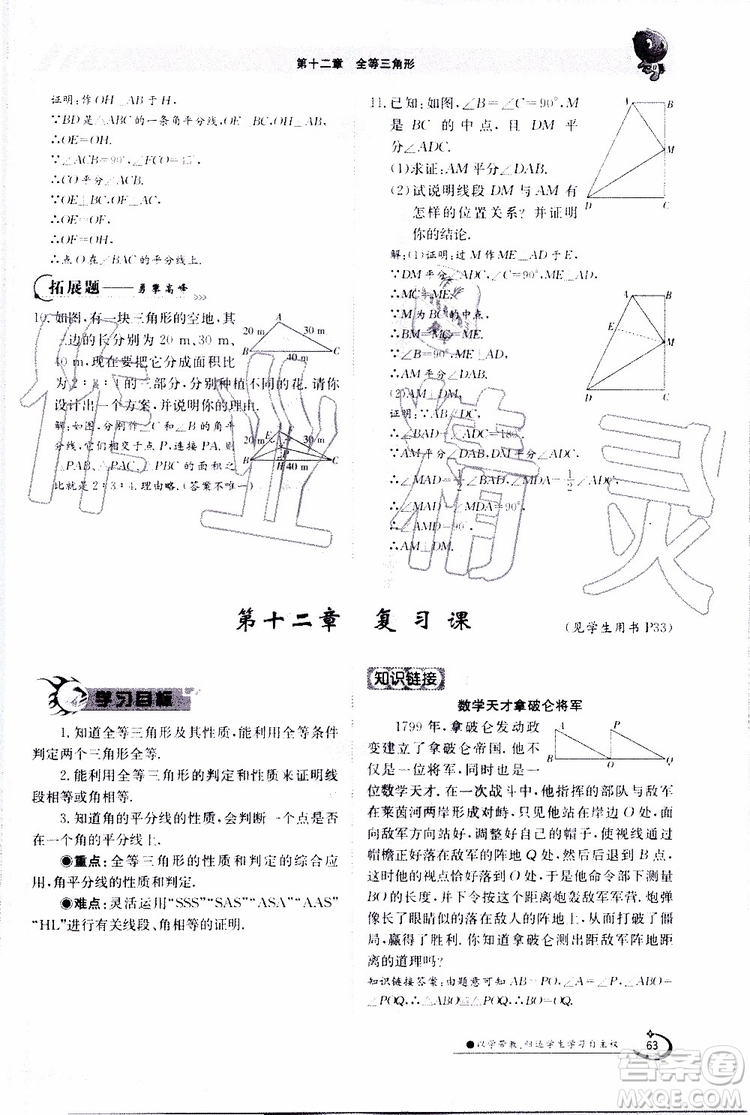 第十二章　全等三角形
证明:作OH⊥AB于H,
∵BD是△ABC的一条角平分线,
∴OE=OH.
∵∠ACB=90°,∠ECO=45°.
∴CO平分∠ACB.
∵OE⊥BC,OF⊥AC,
∴OE=OF,
∴OF=OH,
∴点O在∠BAC的平分线上.
拓展题——勇攀高峰
10. 如图,有一块三角形的空地,其
三边的长分别为20 m,30 m,
40 m,现在要把它分成面积比为
2∶3∶4的三部分,分别种植不同的花.请你
设计出一个方案,并说明你的理由.
A
20 m
30 m
B
40 m
C
解:如图,分别作∠C和∠B的角平
分线,它们相交于点P,连接PA.则
△PAB、△PAC、△PBC的面积之
比就是2∶3∶4.理由略.(答案不唯一)
A
E
20 m
30 m
P
B
H
40 m
C
11. 已知:如图,∠B=∠C=90°,M
是BC的中点,且DM平
分∠ADC.
(1)求证:AM平分∠DAB.
(2)试说明线段DM与AM有
怎样的位置关系?并证明
你的结论.
A
B
M
D
C
解:(1)证明:过M作ME⊥AD于E,
∵DM平分∠ADC,∠C=90°,
∴MC=ME.
∵M为BC的中点,
∴BM=MC=ME.
∵∠B=90°,
∴AM平分∠DAB.
(2)AM⊥DM.
证明:∵AB∥DC,
∴∠BAD+∠ADC=180°.
∴∠MAD=1/2∠BAD,∠MDA=1/2∠ADC.
∴∠MAD+∠MDA=90°.
∴∠AMD=90°.
∴AM⊥DM.
A
B
E
M
D
C
第十二章　复习课
(见学生用书P33)
学习目标
1. 知道全等三角形及其性质,能利用全等条件
判定两个三角形全等.
2. 能利用全等三角形的判定和性质来证明线
段相等或角相等.
3. 知道角的平分线的性质,会判断一个点是否
在一个角的平分线上.
●重点:全等三角形的性质和判定的综合应
用,角平分线的应用.
●难点:灵活运用“SSS”“SAS”“ASA”“AAS”
“HL”进行有关线段、角相等的证明.
知识链接
数学天才拿破仑将军
1799年,拿破仑发动政
变建立了拿破仑帝国.他不
仅是一位将军,同时也是一
位数学天才.在一次战斗中,他指挥的部队与敌军
在莱茵河两岸形成对峙,炮兵站在岸边O处,面
向敌军方向站好,调整好自己的帽子,使视线通过
帽檐正好落在敌军的阵地Q处,于是他命令部下测量
BO的长度,并以这个距离炮轰敌军军营.炮弹
像长了眼睛似的落在敌人的阵地上,打破了僵
局,赢得了胜利.你知道拿破仑测出距敌军阵地距
离的道理吗?
A
P
B
O
Q
知识链接答案:由题意可知AB=PO,∠A=∠P,∠ABO=
∠POQ,∴△ABO≌△POQ,∴BO=OQ.
●以学带教,归还学生学习自主权
63
作业精灵
答案圈
MXQE.COM